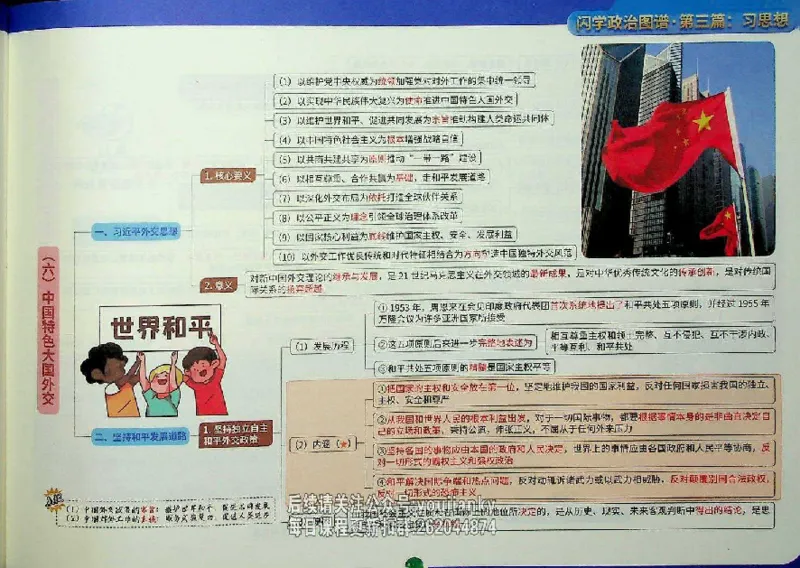 闪学政治图谱·第三篇：习思想
（六）中国特色大国外交
一、习近平外交思想
1. 核心要义
（1）以维护党中央权威为统领加强党对对外工作的集中统一领导
（2）以实现中华民族伟大复兴为使命推进中国特色大国外交
（3）以维护世界和平、促进共同发展为宗旨推动构建人类命运共同体
（4）以中国特色社会主义为根本增强战略自信
（5）以共商共建共享为原则推动“一带一路”建设
（6）以相互尊重、合作共赢为基础，走和平发展道路
（7）以深化外交布局为依托打造全球伙伴关系
（8）以公平正义为理念引领全球治理体系改革
（9）以国家核心利益为底线维护国家主权、安全、发展利益
（10）以外交工作优良传统和时代特征相结合为方向塑造中国独特外交风范
2. 意义
对新中国外交理论的继承与发展，是21世纪马克思主义在外交领域的最新成果，是对中华优秀传统文化的传承创新，是对传统国
际关系的扬弃超越
世界和平
二、坚持和平发展道路
1. 坚持独立自主
和平外交政策
（1）发展历程
①1953年，周恩来在会见印度政府代表团首次系统地提出了和平共处五项原则，并经过1955年
万隆会议为许多亚洲国家所接受
②这五项原则后来进一步完整地表述为
相互尊重主权和领土完整、互不侵犯、互不干涉内政、
平等互利、和平共处
③和平共处五项原则的精髓是国家主权平等
（2）内涵（★）
①把国家的主权和安全放在第一位，坚定地维护我国的国家利益，反对任何国家损害我国的独立、
主权、安全和尊严
②从我国和世界人民的根本利益出发，对于一切国际事物，都要根据事情本身的是非曲直决定自
己的立场和政策，秉持公道，伸张正义，不屈从于任何外来压力
③坚持各国的事物应由本国的政府和人民决定，世界上的事情应由各国政府和人民平等协商，反
对一切形式的霸权主义和强权政治
④和平解决国际争端和热点问题，反对动辄诉诸武力或以武力相威胁，反对颠覆别国合法政权，
反对一切形式的恐怖主义
（1）中国外交政策的宗旨：维护世界和平、促进共同发展
（2）中国对外工作的主线：服务民族复兴、促进人类进步
位所决定的，是从历史、现实、未来客观判断中得出的结论，是思
后续请关注公众号
每日课程更新